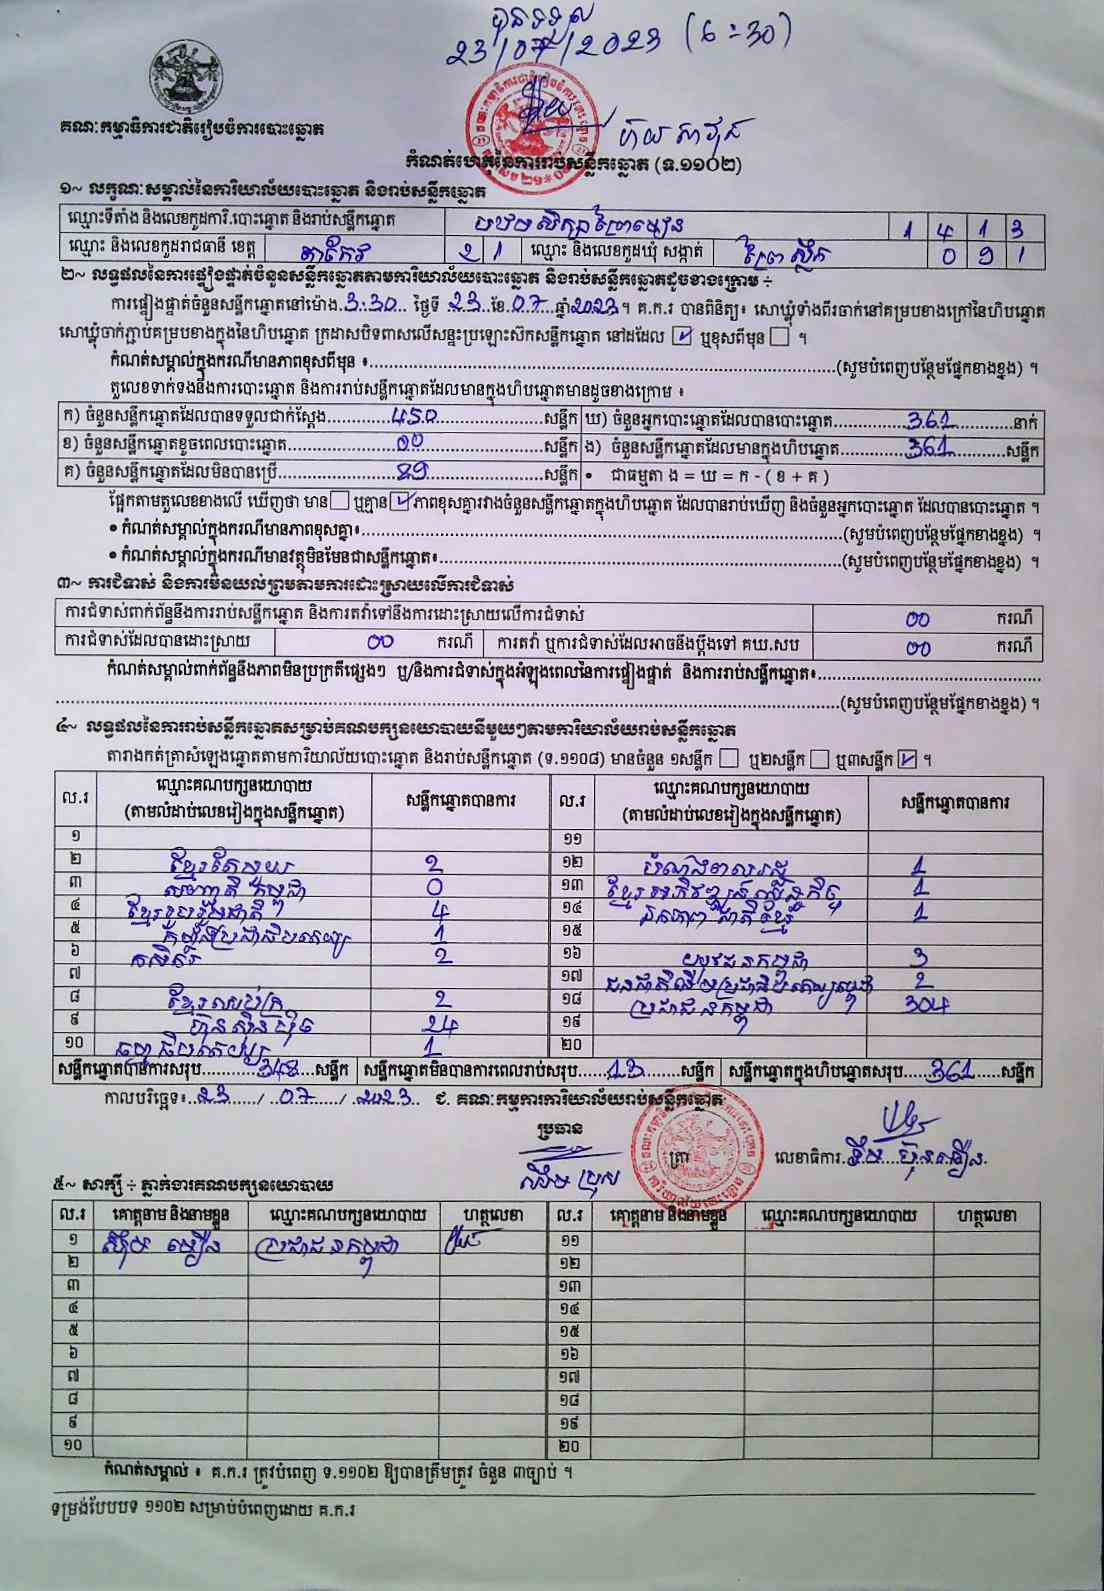 បានទទួល
23/07/2023 (6:30)
គណៈកម្មាធិការជាតិរៀបចំការបោះឆ្នោត
កំណត់ហេតុនៃការរាប់សន្លឹកឆ្នោត (ទ.១១០២)
១~ លក្ខណៈសម្គាល់នៃការិយាល័យបោះឆ្នោត និងរាប់សន្លឹកឆ្នោត
ឈ្មោះទីតាំង និងលេខកូដការិ.បោះឆ្នោត និងរាប់សន្លឹកឆ្នោត 1 4 1 3
ឈ្មោះ និងលេខកូដរាជធានី ខេត្ត តាកែវ 2 1 ឈ្មោះ និងលេខកូដឃុំ សង្កាត់ ព្រៃស្លឹក 0 9 1
២~ លទ្ធផលនៃការផ្ទៀងផ្ទាត់ចំនួនសន្លឹកឆ្នោតតាមការិយាល័យបោះឆ្នោត និងរាប់សន្លឹកឆ្នោតដូចខាងក្រោម ÷
ការផ្ទៀងផ្ទាត់ចំនួនសន្លឹកឆ្នោតនៅម៉ោង.3:30... ថ្ងៃទី .23.ខែ.07.ឆ្នាំ2023។ គ.ក.រ បានពិនិត្យ៖ សោឃ្លុំទាំងពីរចាក់នៅគម្របខាងក្រៅនៃហិបឆ្នោត
សោឃ្លុំចាក់ភ្ជាប់គម្របខាងក្នុងនៃហិបឆ្នោត ក្រដាសបិទពាសលើសន្ទះប្រឡោះស៊កសន្លឹកឆ្នោត នៅដដែល ☑ ឬខុសពីមុន ☐ ។
កំណត់សម្គាល់ក្នុងករណីមានភាពខុសពីមុន ៖...(សូមបំពេញបន្ថែមផ្នែកខាងខ្នង) ។
តួលេខទាក់ទងនឹងការបោះឆ្នោត និងការរាប់សន្លឹកឆ្នោតដែលមានក្នុងហិបឆ្នោតមានដូចខាងក្រោម ៖
ក) ចំនួនសន្លឹកឆ្នោតដែលបានទទួលជាក់ស្តែង...450...សន្លឹក ឃ) ចំនួនអ្នកបោះឆ្នោតដែលបានបោះឆ្នោត...361...នាក់
ខ) ចំនួនសន្លឹកឆ្នោតខូចពេលបោះឆ្នោត...00...សន្លឹក ង) ចំនួនសន្លឹកឆ្នោតដែលមានក្នុងហិបឆ្នោត...361...សន្លឹក
គ) ចំនួនសន្លឹកឆ្នោតដែលមិនបានប្រើ...89...សន្លឹក • ជាធម្មតា ង = ឃ = ក - ( ខ + គ )
ផ្អែកតាមតួលេខខាងលើ ឃើញថា មាន☐ ឬគ្មាន☑ភាពខុសគ្នារវាងចំនួនសន្លឹកឆ្នោតក្នុងហិបឆ្នោត ដែលបានរាប់ឃើញ និងចំនួនអ្នកបោះឆ្នោត ដែលបានបោះឆ្នោត ។
• កំណត់សម្គាល់ក្នុងករណីមានភាពខុសគ្នា៖...(សូមបំពេញបន្ថែមផ្នែកខាងខ្នង) ។
• កំណត់សម្គាល់ក្នុងករណីមានវត្ថុមិនមែនជាសន្លឹកឆ្នោត៖...(សូមបំពេញបន្ថែមផ្នែកខាងខ្នង) ។
៣~ ការជំទាស់ និងការមិនយល់ព្រមតាមការដោះស្រាយលើការជំទាស់
ការជំទាស់ពាក់ព័ន្ធនឹងការរាប់សន្លឹកឆ្នោត និងការតវ៉ាទៅនឹងការដោះស្រាយលើការជំទាស់ 00 ករណី
ការជំទាស់ដែលបានដោះស្រាយ 00 ករណី ការតវ៉ា ឬការជំទាស់ដែលអាចនឹងប្តឹងទៅ គឃ.សប 00 ករណី
កំណត់សម្គាល់ពាក់ព័ន្ធនឹងភាពមិនប្រក្រតីផ្សេងៗ ឬ/និងការជំទាស់ក្នុងអំឡុងពេលនៃការផ្ទៀងផ្ទាត់ និងការរាប់សន្លឹកឆ្នោត៖...
...(សូមបំពេញបន្ថែមផ្នែកខាងខ្នង) ។
៤~ លទ្ធផលនៃការរាប់សន្លឹកឆ្នោតសម្រាប់គណបក្សនយោបាយនីមួយៗតាមការិយាល័យរាប់សន្លឹកឆ្នោត
តារាងកត់ត្រាសំឡេងឆ្នោតតាមការិយាល័យបោះឆ្នោត និងរាប់សន្លឹកឆ្នោត (ទ.១១០៨) មានចំនួន ១សន្លឹក ☐ ឬ២សន្លឹក ☐ ឬ៣សន្លឹក ☑ ។
ល.រ ឈ្មោះគណបក្សនយោបាយ (តាមលំដាប់លេខរៀងក្នុងសន្លឹកឆ្នោត) សន្លឹកឆ្នោតបានការ ល.រ ឈ្មោះគណបក្សនយោបាយ (តាមលំដាប់លេខរៀងក្នុងសន្លឹកឆ្នោត) សន្លឹកឆ្នោតបានការ
១ ១១
២ ខ្មែរតែមួយ 2 ១២ 1
៣ សញ្ជាតិកម្ពុជា 0 ១៣ ខ្មែរអភិវឌ្ឍន៍សេដ្ឋកិច្ច 1
៤ ខ្មែររួបរួមជាតិ 4 ១៤ ឯកភាពជាតិខ្មែរ 1
៥ កំម្លាំងប្រជាធិបតេយ្យ 1 ១៥
៦ កសិករ 2 ១៦ យុវជនកម្ពុជា 3
៧ ១៧ ជនជាតិដើមប្រជាធិបតេយ្យកម្ពុជា 2
៨ ខ្មែរឈប់ក្រ 2 ១៨ ប្រជាជនកម្ពុជា 304
៩ ហ្វ៊ុនស៊ិនប៉ិច 24 ១៩
១០ ធម្មាធិបតេយ្យ 1 ២០
សន្លឹកឆ្នោតបានការសរុប...348...សន្លឹក សន្លឹកឆ្នោតមិនបានការពេលរាប់សរុប...13...សន្លឹក សន្លឹកឆ្នោតក្នុងហិបឆ្នោតសរុប...361...សន្លឹក
កាលបរិច្ឆេទ៖..23..../..07..../..2023.. ជ. គណៈកម្មការការិយាល័យរាប់សន្លឹកឆ្នោត
ប្រធាន
ត្រា លេខាធិការ
៥~ សាក្សី ÷ ភ្នាក់ងារគណបក្សនយោបាយ
ល.រ គោត្តនាម និងនាមខ្លួន ឈ្មោះគណបក្សនយោបាយ ហត្ថលេខា ល.រ គោត្តនាម និងនាមខ្លួន ឈ្មោះគណបក្សនយោបាយ ហត្ថលេខា
១ ប្រជាជនកម្ពុជា ១១
២ ១២
៣ ១៣
៤ ១៤
៥ ១៥
៦ ១៦
៧ ១៧
៨ ១៨
៩ ១៩
១០ ២០
កំណត់សម្គាល់ ៖ គ.ក.រ ត្រូវបំពេញ ទ.១១០២ ឱ្យបានត្រឹមត្រូវ ចំនួន ៣ច្បាប់ ។
ទម្រង់បែបបទ ១១០២ សម្រាប់បំពេញដោយ គ.ក.រ